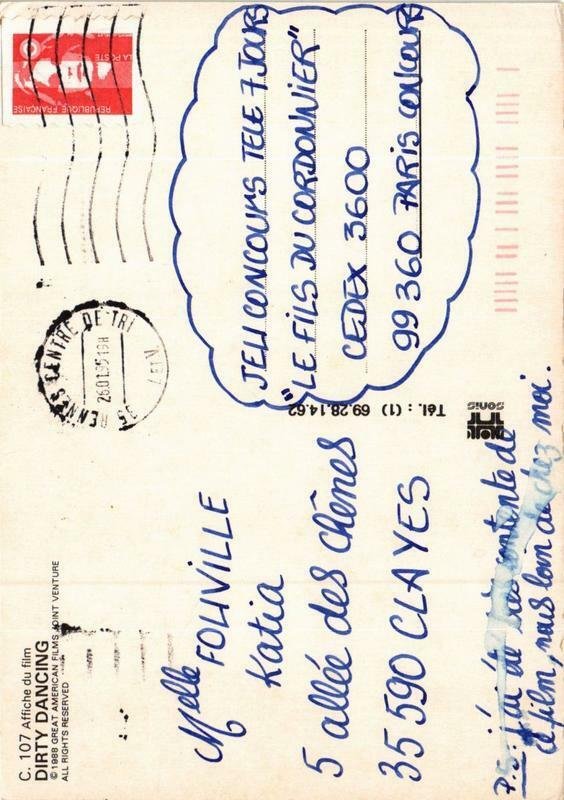 C. 107 Affiche du film
DIRTY DANCING
© 1988 GREAT AMERICAN FILMS JOINT VENTURE
ALL RIGHTS RESERVED
Melle FOUVILLE
Katia
5 allée des chênes
35 590 CLAYES
P.S : j'ai été très contente de
ce film, mais loin de chez moi.
Tél. : (1) 69.28.14.62
sonis
35 RENNES CENTRE DE TRI
26.01.95 19H
RÉPUBLIQUE FRANÇAISE
LA POSTE
JEU CONCOURS TELE 7 JOURS
"LE FILS DU CORDONNIER"
CEDEX 3600
99 360 PARIS CONCOURS